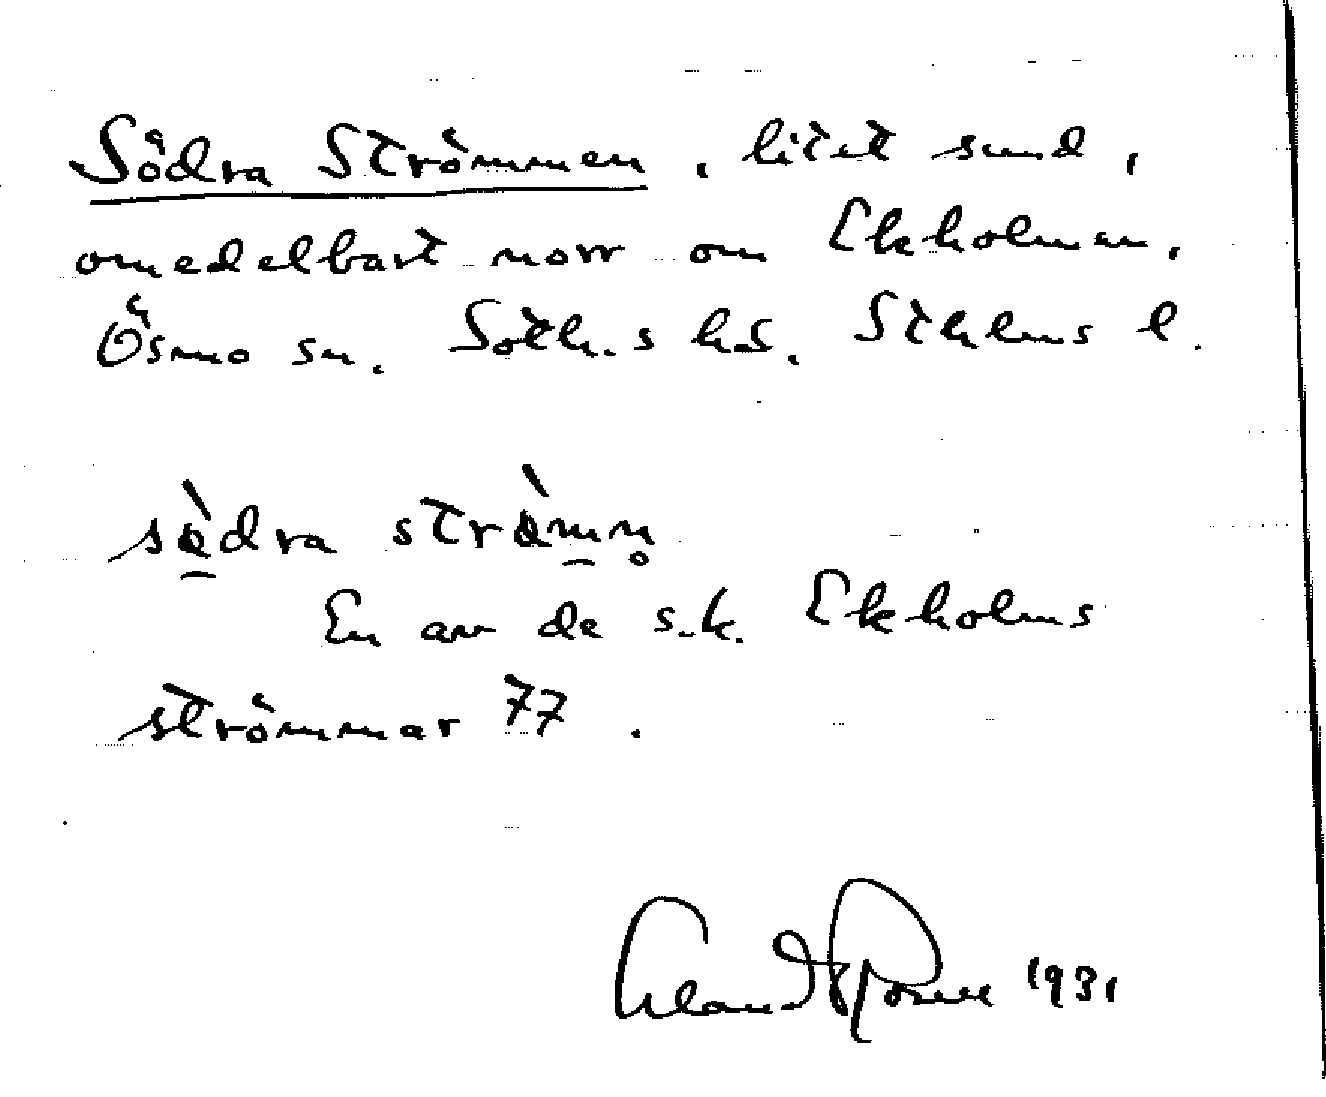 Södra Strömmen, litet sund,
omedelbart norr om Ekholmen.
Ösmo sn. Soth.s hd. Sthlms l.
södra strömn̥
En av de s.k. Ekholms
strömmar 77.
1931